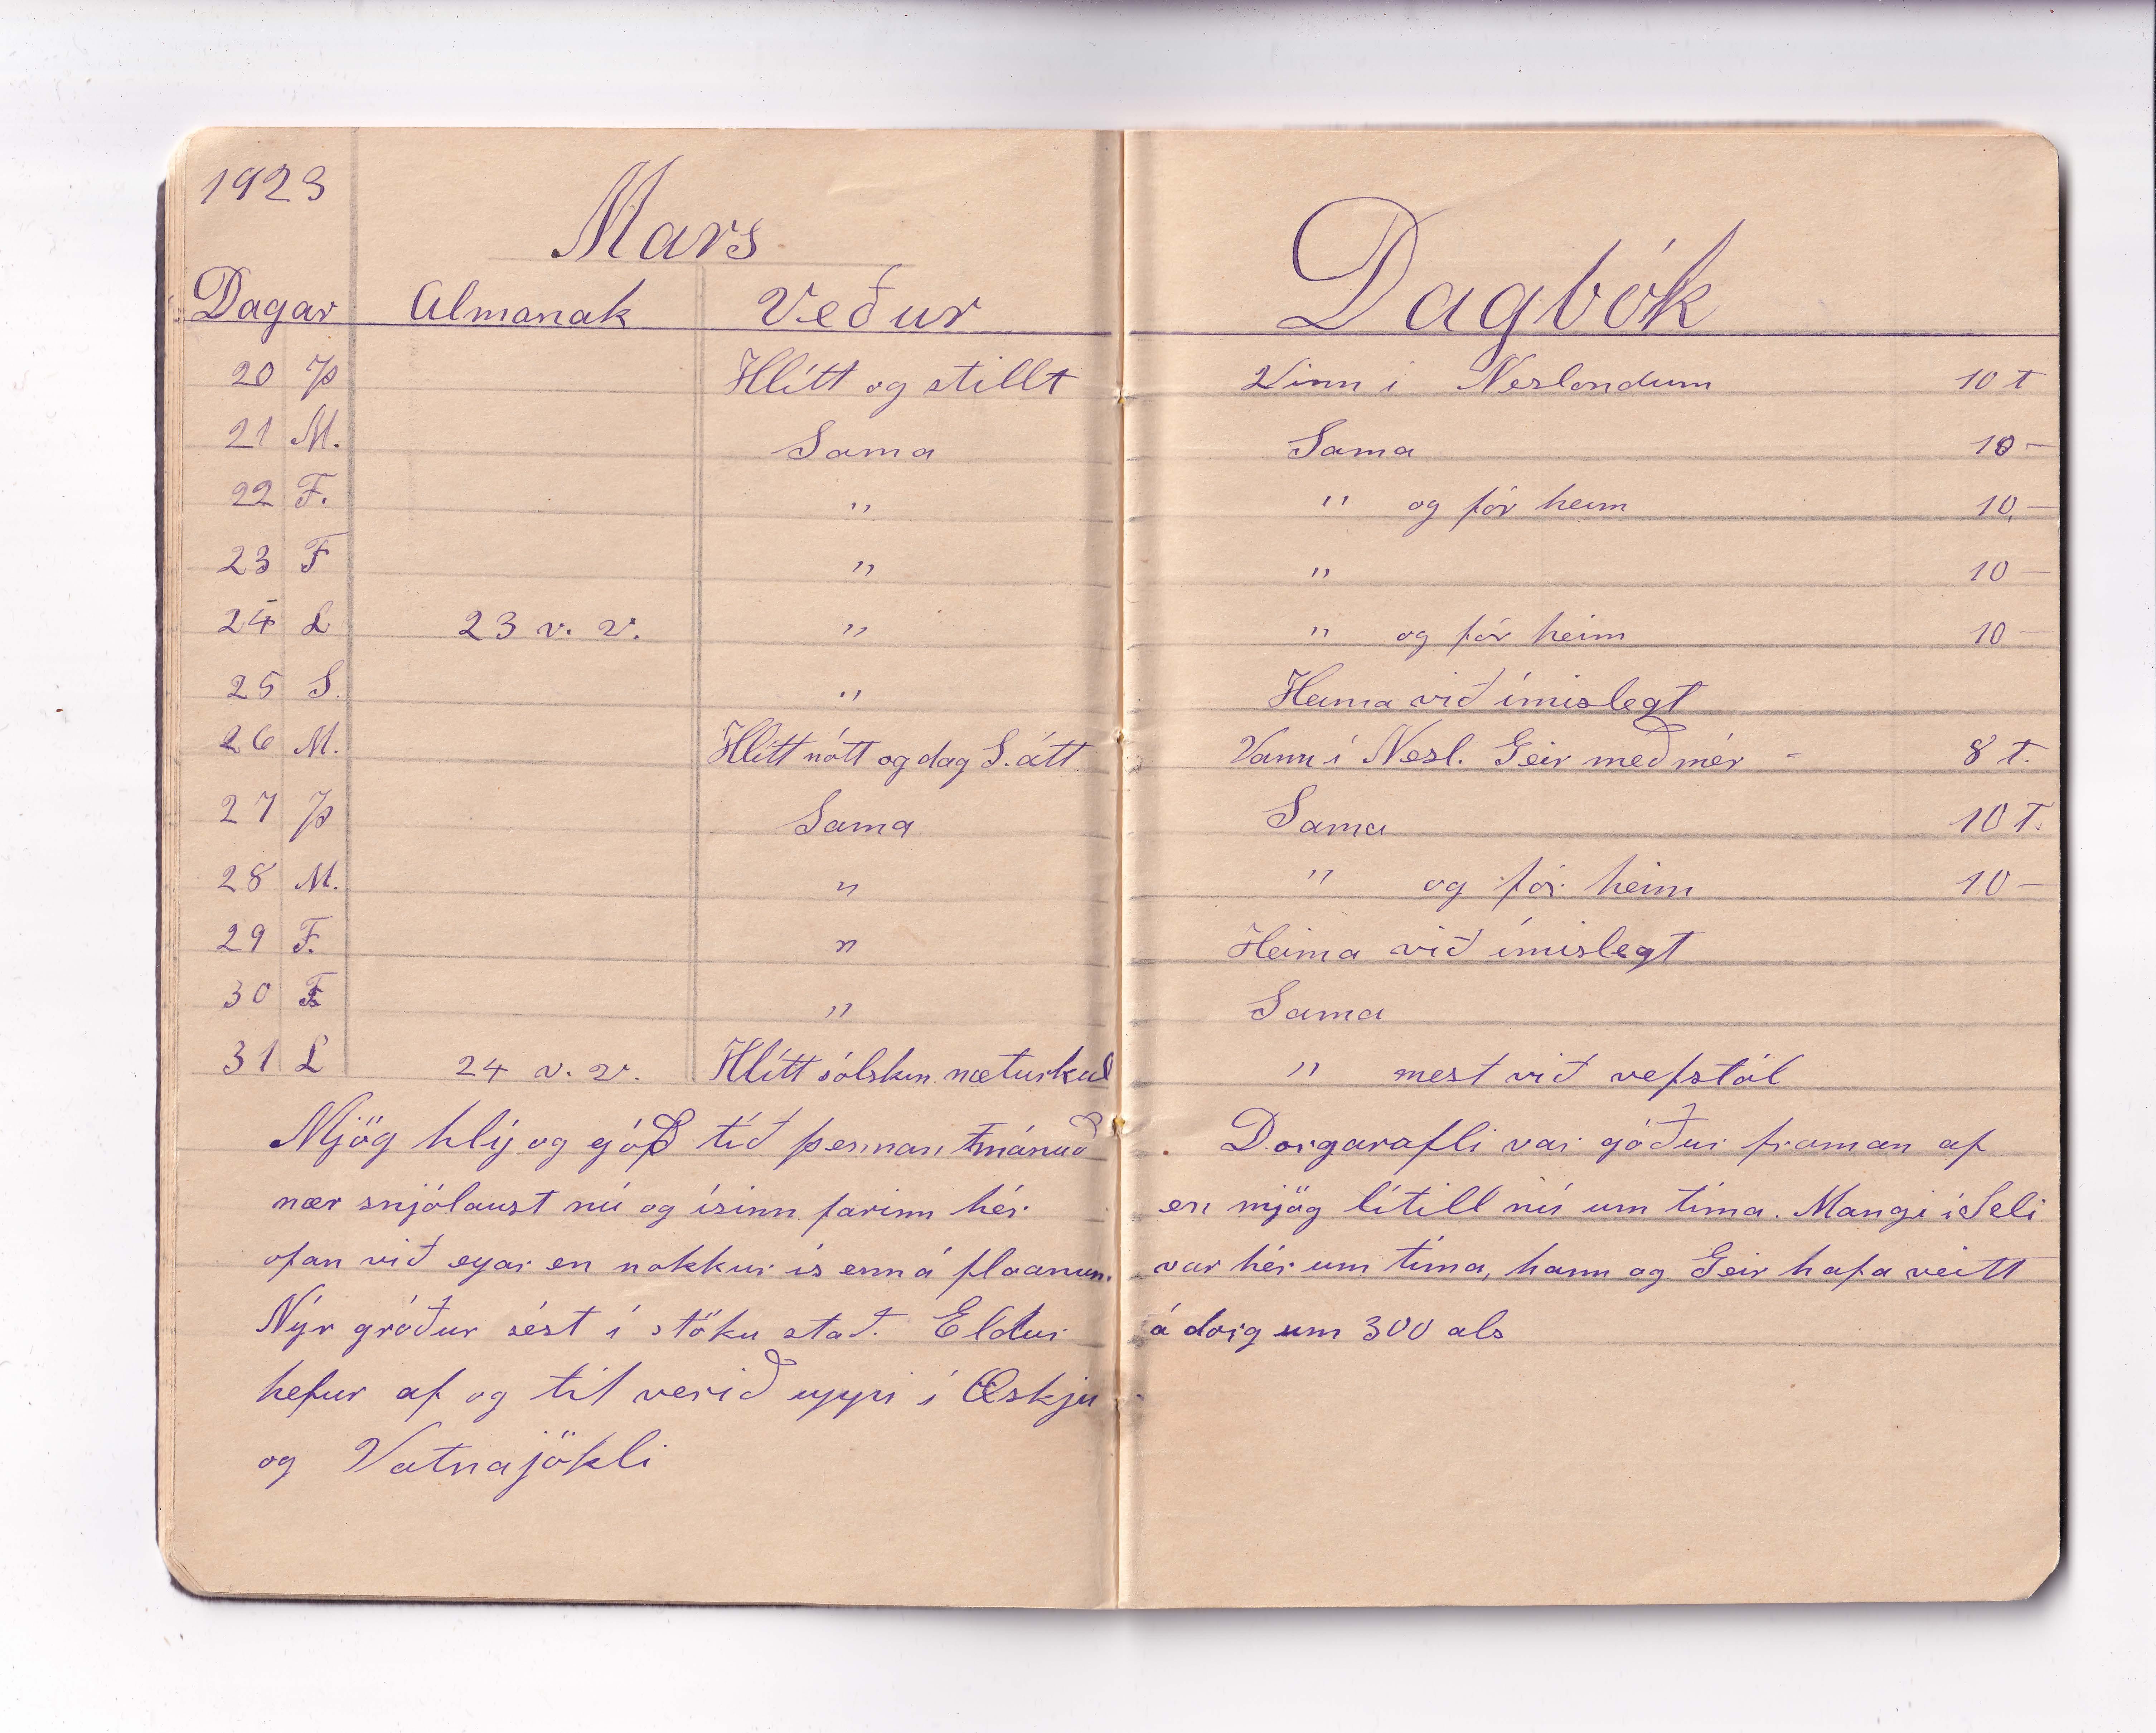 1923
Mars
Dagbók
Dagar Almanak Veður
20 Þ Hlítt og stillt Vinn í Neslondum 10 t
21 M. Sama Sama 10 –
22 F. " " og fór heim 10, –
23 F " " 10 –
24 L 23 v. v. " " og fór heim 10 –
25 S. " Heima við ímislegt
26 M. Hlítt nótt og dag S. átt Vann í Nesl. Geir með mér - 8 t.
27 Þ Sama Sama 10 T.
28 M. " " og fór heim 10 –
29 F. " Heima við ímislegt
30 F " Sama
31 L 24 v. v. Hlítt sólskin næturkul " mest við vefstól
Mjög hlý og góð tíð þennan mánuð
nær snjólaust nú og ísinn farinn hér
ofan við eyar en nokkur ís enn á flóanum.
Nýr gróður sést í stöku stað. Eldur
hefur af og til verið uppi í Öskju
og Vatnajökli
Dorgarafli var góður framan af
en mjög lítill nú um tíma. Mangi í Seli
var hér um tíma, hann og Geir hafa veitt
á dorg um 300 als